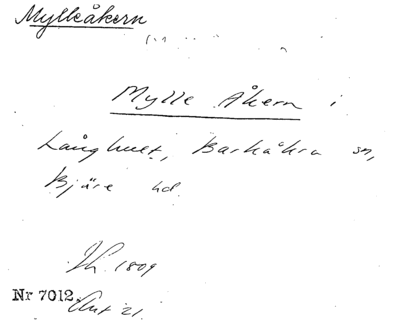 Mylleåkern
Mylle Åkern i
Långhult, Barkåkra sn,
Bjäre hd.
1809
Nr 7012.